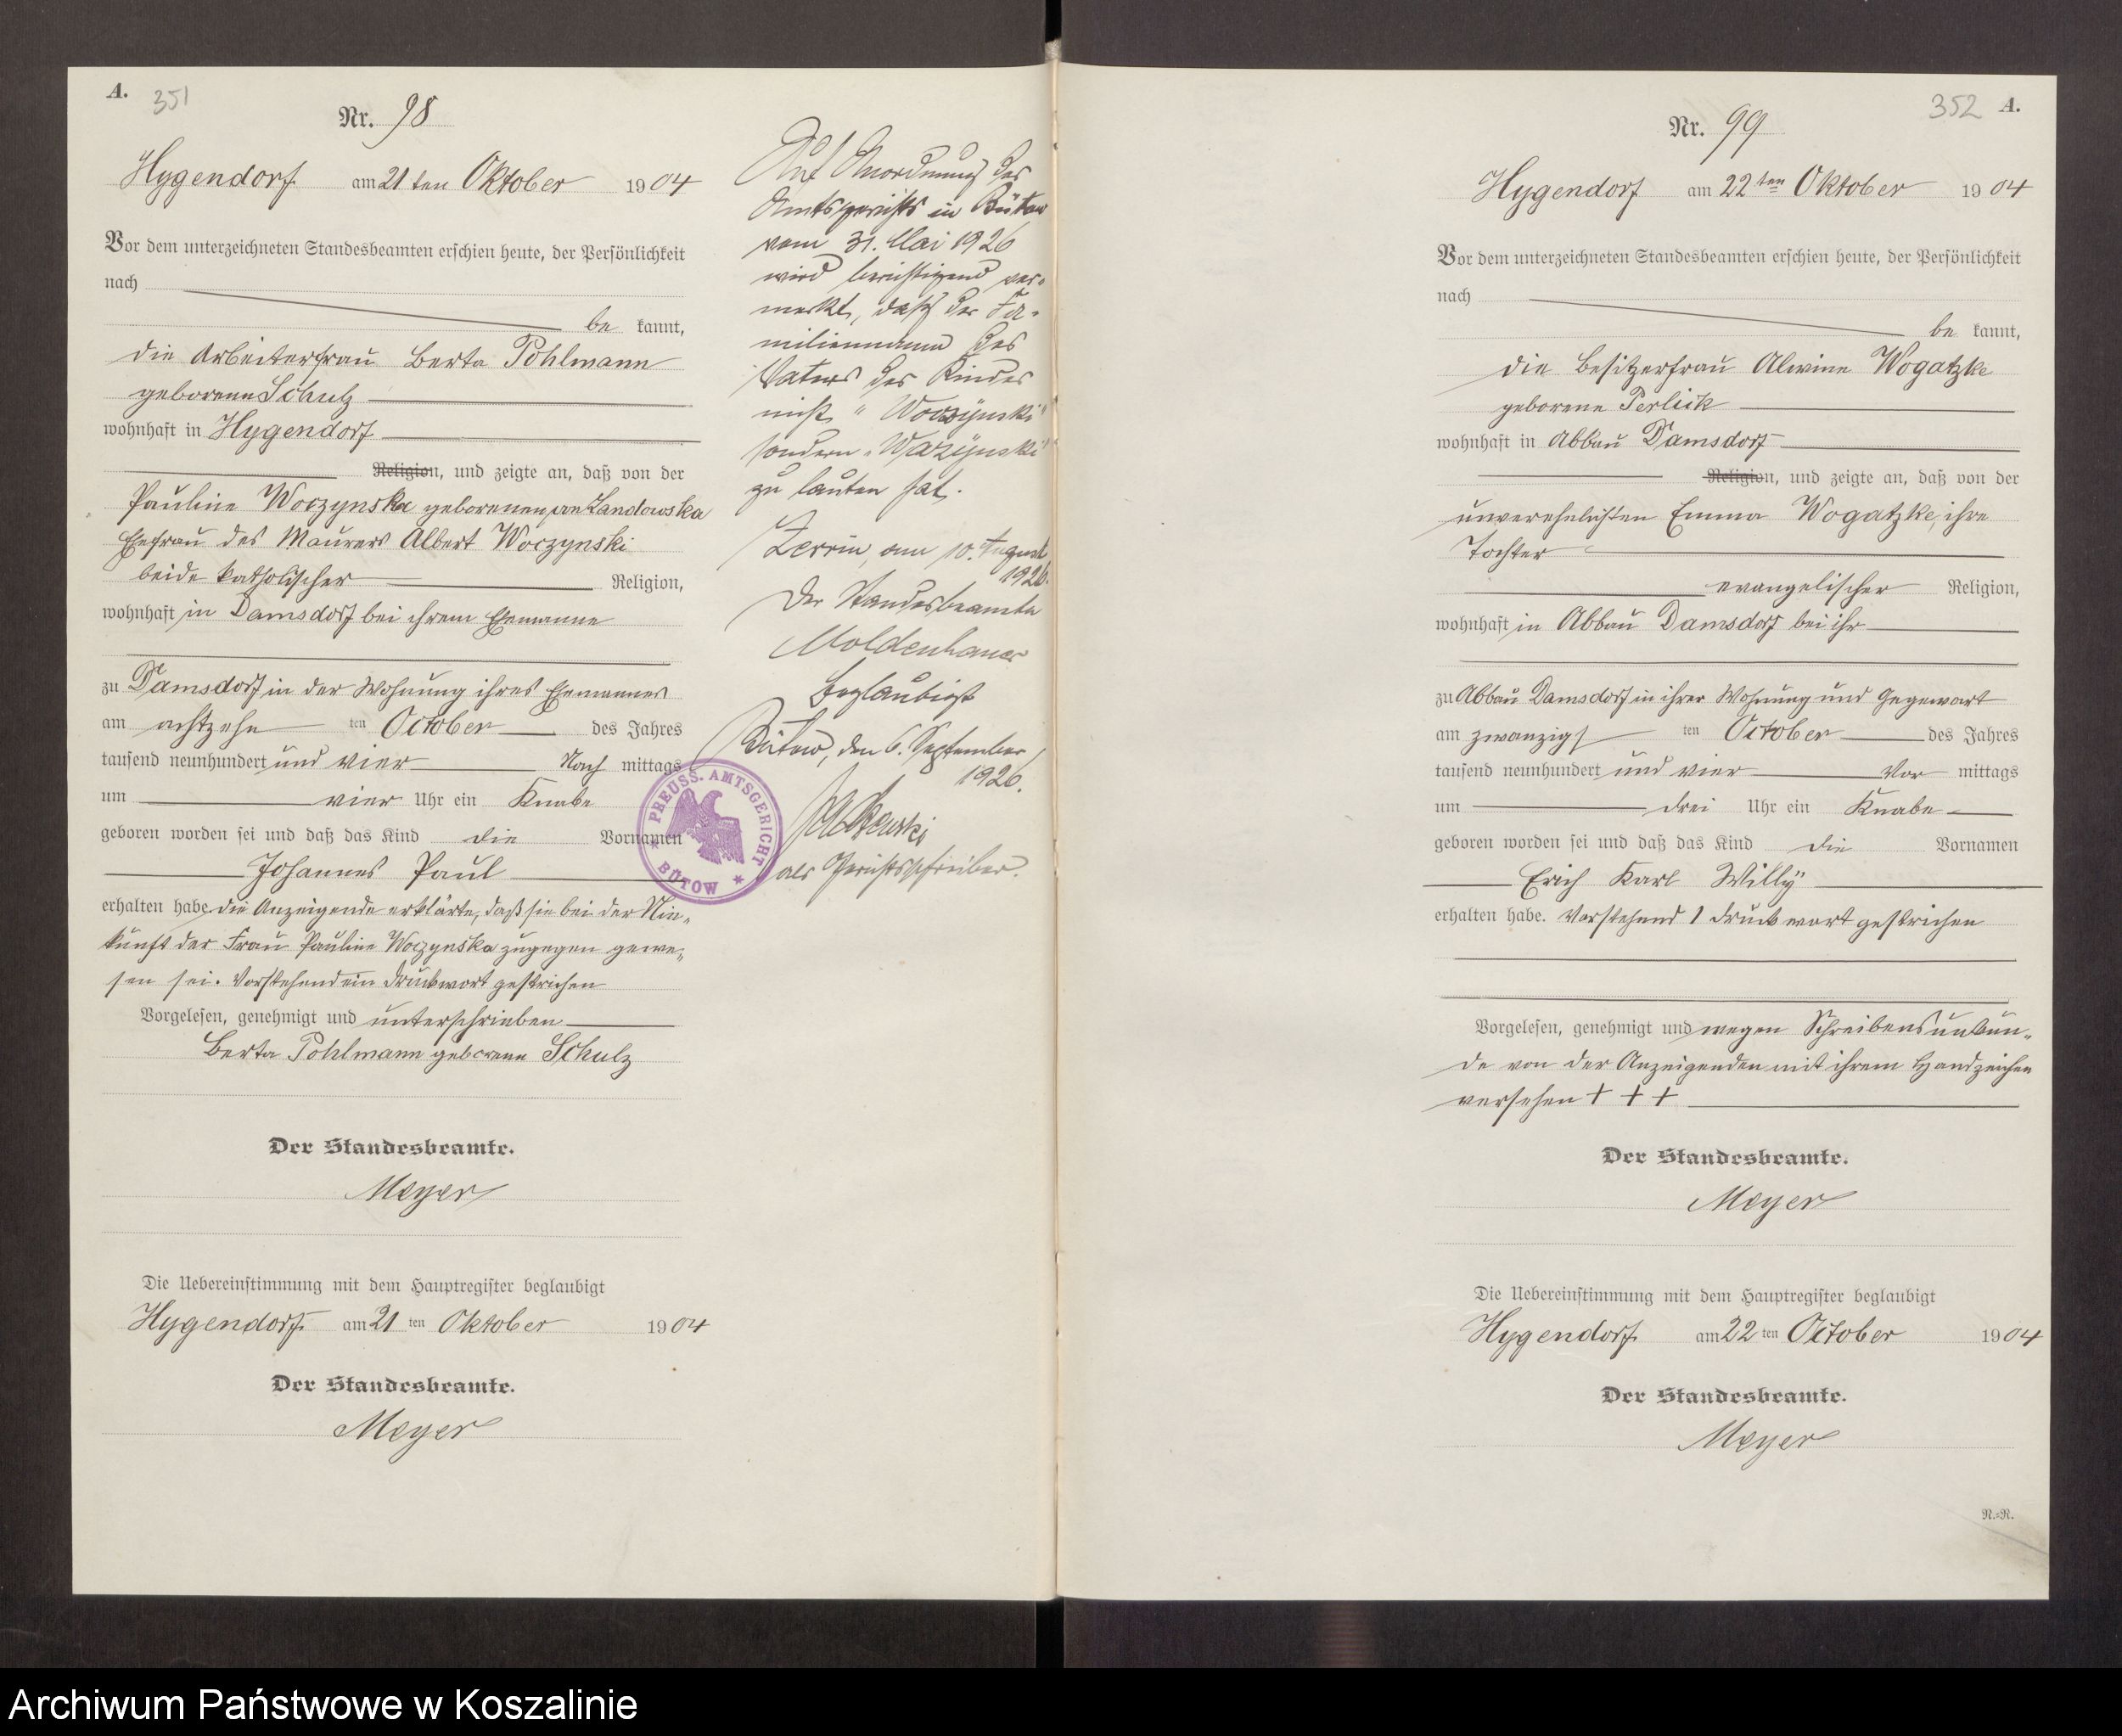 A. 351
Nr. 98
Hygendorf am 21 ten Oktober 1904
Vor dem unterzeichneten Standesbeamten erschien heute, der Persönlichkeit
nach
be kannt,
die Arbeiterfrau Berta Pohlmann
geborene Schulz
wohnhaft in Hygendorf
Religion, und zeigte an, daß von der
Pauline Woczynska geborenen von Landowska
Ehefrau des Maurers Albert Woczynski
beide katholischer Religion,
wohnhaft in Damsdorf bei ihrem Ehemanne
zu Damsdorf in der Wohnung ihres Ehemannes
am achtzehn ten October des Jahres
tausend neunhundert und vier Nach mittags
um vier Uhr ein Knabe
geboren worden sei und daß das Kind die Vornamen
Johannes Paul
erhalten habe die Anzeigende erklärte, daß sie bei der Nie-
kunft der Frau Pauline Woczynska zugegen gewe-
sen sei. Vorstehend ein Druckwort gestrichen
Vorgelesen, genehmigt und unterschrieben
Berta Pohlmann geborene Schulz
Der Standesbeamte.
Meyer
Die Uebereinstimmung mit dem Hauptregister beglaubigt
Hygendorf am 21 ten Oktober 1904
Der Standesbeamte.
Meyer
Auf Anordnung des
Amtsgerichts in Bütow
vom 31. Mai 1926
wird berichtigend ver-
merkt, daß der Fa-
milienname des
Vaters des Kindes
nicht "Woczÿnski"
sondern "Wazÿnski"
zu lauten hat.
Zerrin, am 10. August
1926.
Der Standesbeamte
Moldenhauer
Beglaubigt
Bütow, den 6. September
1926.
als Gerichtsschreiber.
PREUSS. AMTSGERICHT
BÜTOW
352 A.
Nr. 99
Hygendorf am 22 ten Oktober 1904
Vor dem unterzeichneten Standesbeamten erschien heute, der Persönlichkeit
nach
be kannt,
die Besitzerfrau Alwine Wogatzke
geborene Perlick
wohnhaft in Abbau Damsdorf
Religion, und zeigte an, daß von der
unverehelichten Emma Wogatzke, ihre
Tochter
evangelischer Religion,
wohnhaft in Abbau Damsdorf bei ihr
zu Abbau Damsdorf in ihrer Wohnung und Gegenwart
am zwanzigs ten October des Jahres
tausend neunhundert und vier Vor mittags
um drei Uhr ein Knabe
geboren worden sei und daß das Kind die Vornamen
Erich Karl Willÿ
erhalten habe. Vorstehend 1 Druckwort gestrichen
Vorgelesen, genehmigt und wegen Schreibensunkun-
de von der Anzeigenden mit ihrem Handzeichen
versehen + + +
Der Standesbeamte.
Meyer
Die Uebereinstimmung mit dem Hauptregister beglaubigt
Hygendorf am 22 ten October 1904
Der Standesbeamte.
Meyer
N.=N.
Archiwum Państwowe w Koszalinie